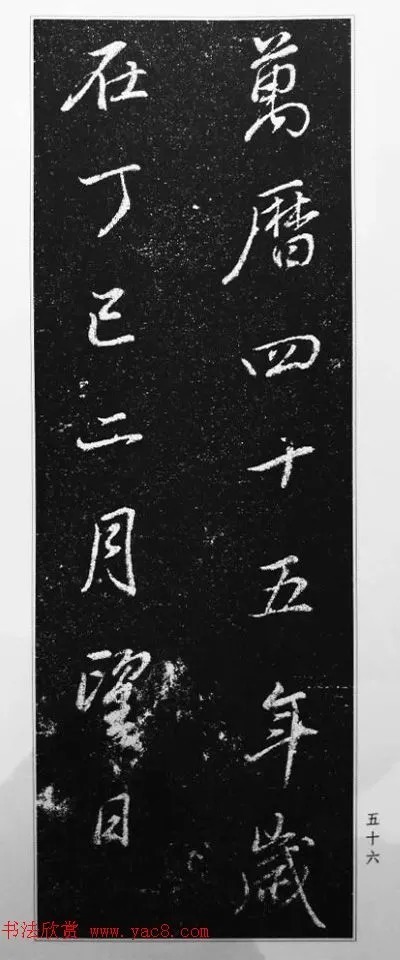 萬曆四十五年歲
在丁巳二月望日
五十六
书法欣赏 www.yac8.com